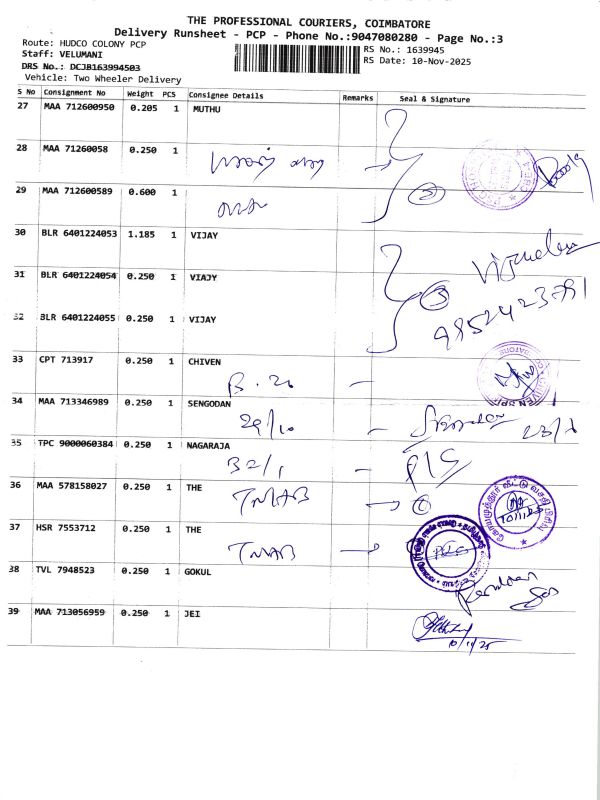 THE PROFESSIONAL COURIERS, COIMBATORE
Delivery Runsheet - PCP - Phone No.:9047080280 - Page No.:3
Route: HUDCO COLONY PCP
RS No.: 1639945
Staff: VELUMANI
RS Date: 10-Nov-2025
DRS No.: DCJB163994503
Vehicle: Two Wheeler Delivery
S No Consignment No Weight PCS Consignee Details Remarks Seal & Signature
27 MAA 712600950 0.205 1 MUTHU
28 MAA 71260058 0.250 1
29 MAA 712600589 0.600 1
3
30 BLR 6401224053 1.185 1 VIJAY
31 BLR 6401224054 0.250 1 VIAJY
3
32 BLR 6401224055 0.250 1 VIJAY
33 CPT 713917 0.250 1 CHIVEN
B.20
34 MAA 713346989 0.250 1 SENGODAN
29/10
35 TPC 9000060384 0.250 1 NAGARAJA
B2/1
36 MAA 578158027 0.250 1 THE
TMAB
37 HSR 7553712 0.250 1 THE
TMAB
38 TVL 7948523 0.250 1 GOKUL
39 MAA 713056959 0.250 1 JEI
10/11/25